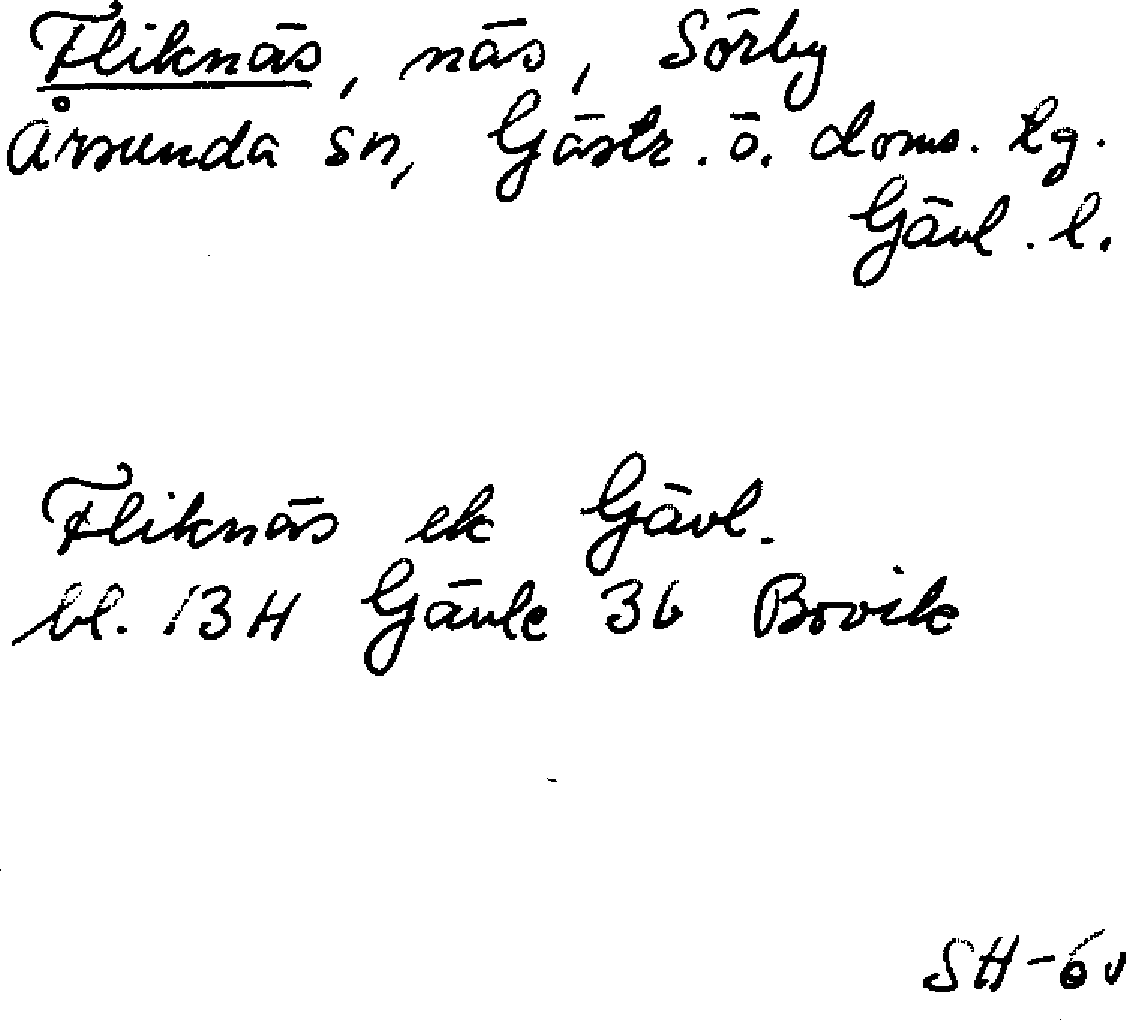 Fliknäs, näs, Sörby
Årsunda sn, Gästr. ö. doms. tg.
Gävl. l.
Fliknäs ek Gävl.
bl. 13H Gävle 3b Bovik
SH-60